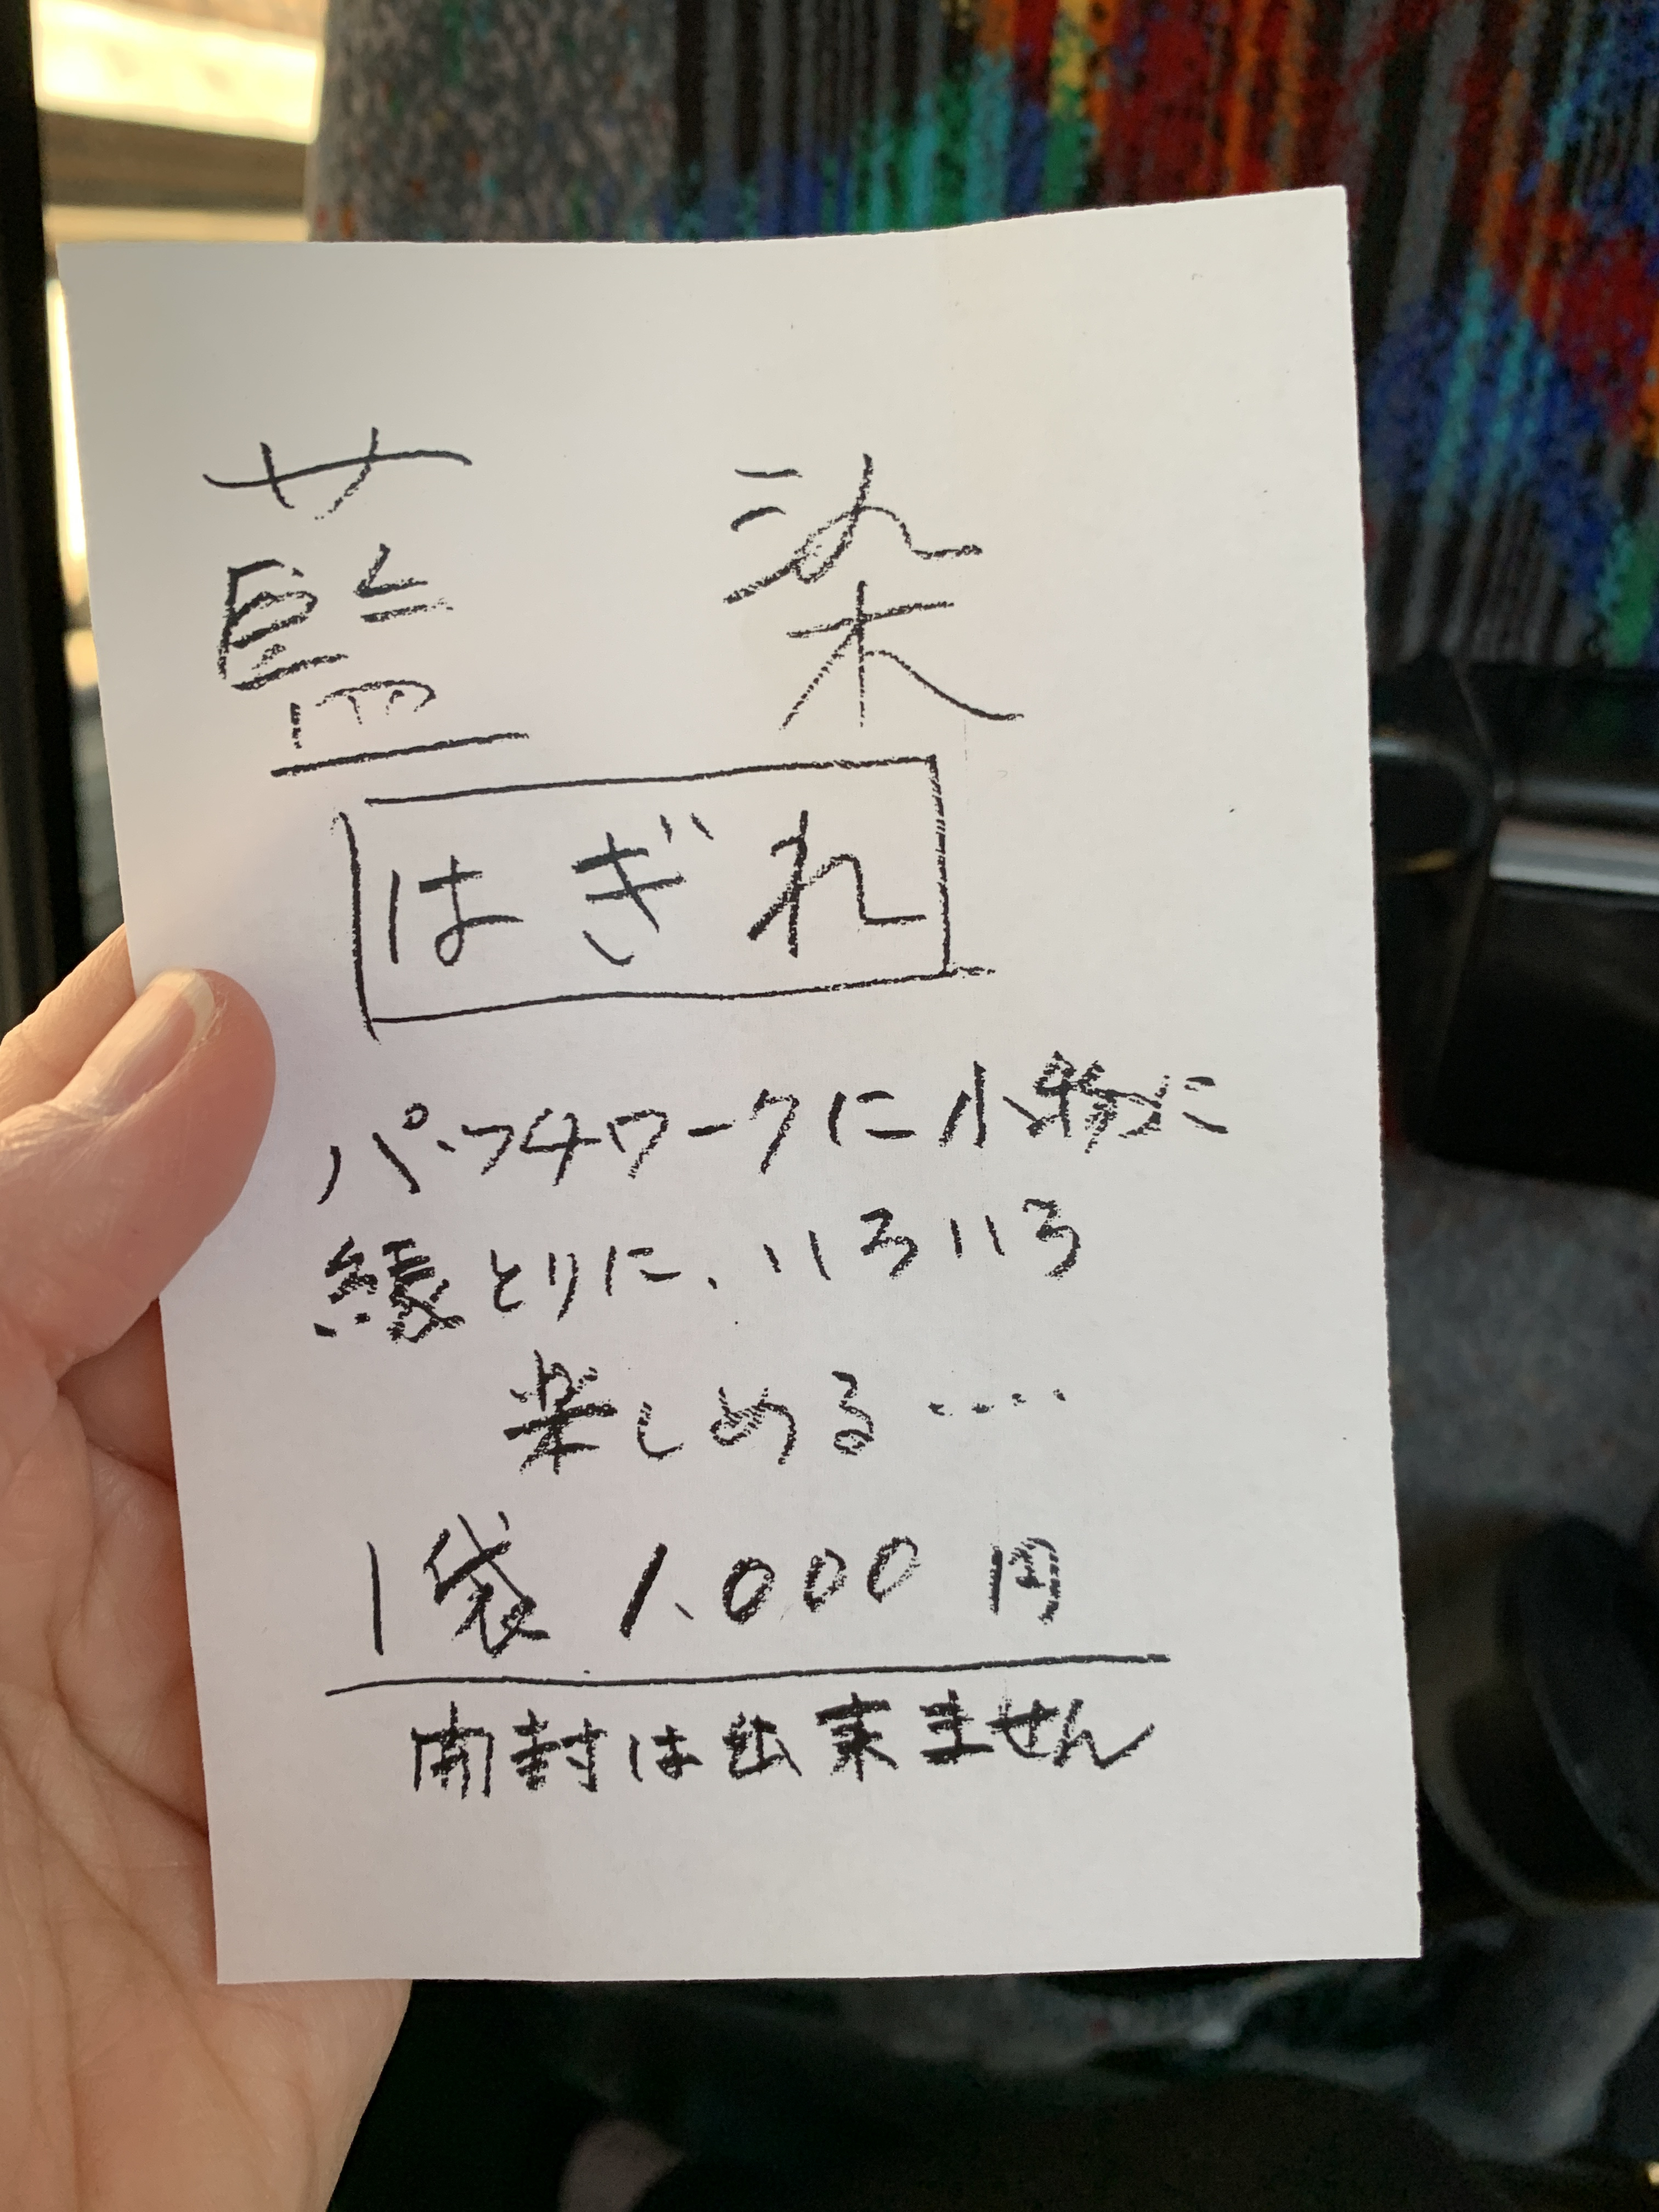 藍染
はぎれ
パッチワークに小物に
縁とりに、いろいろ
楽しめる‥‥
1袋 1,000円
開封は出来ません